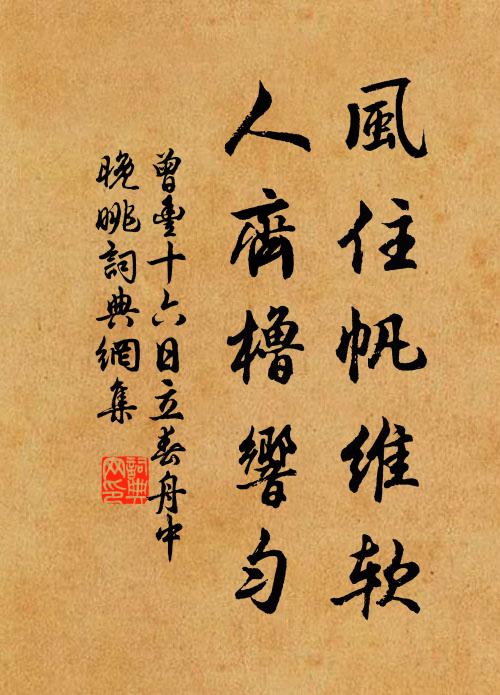 風住帆維軟
人齊櫓響勻
曾豐十六日立春舟中
晚眺詞典網集
詞典
网印